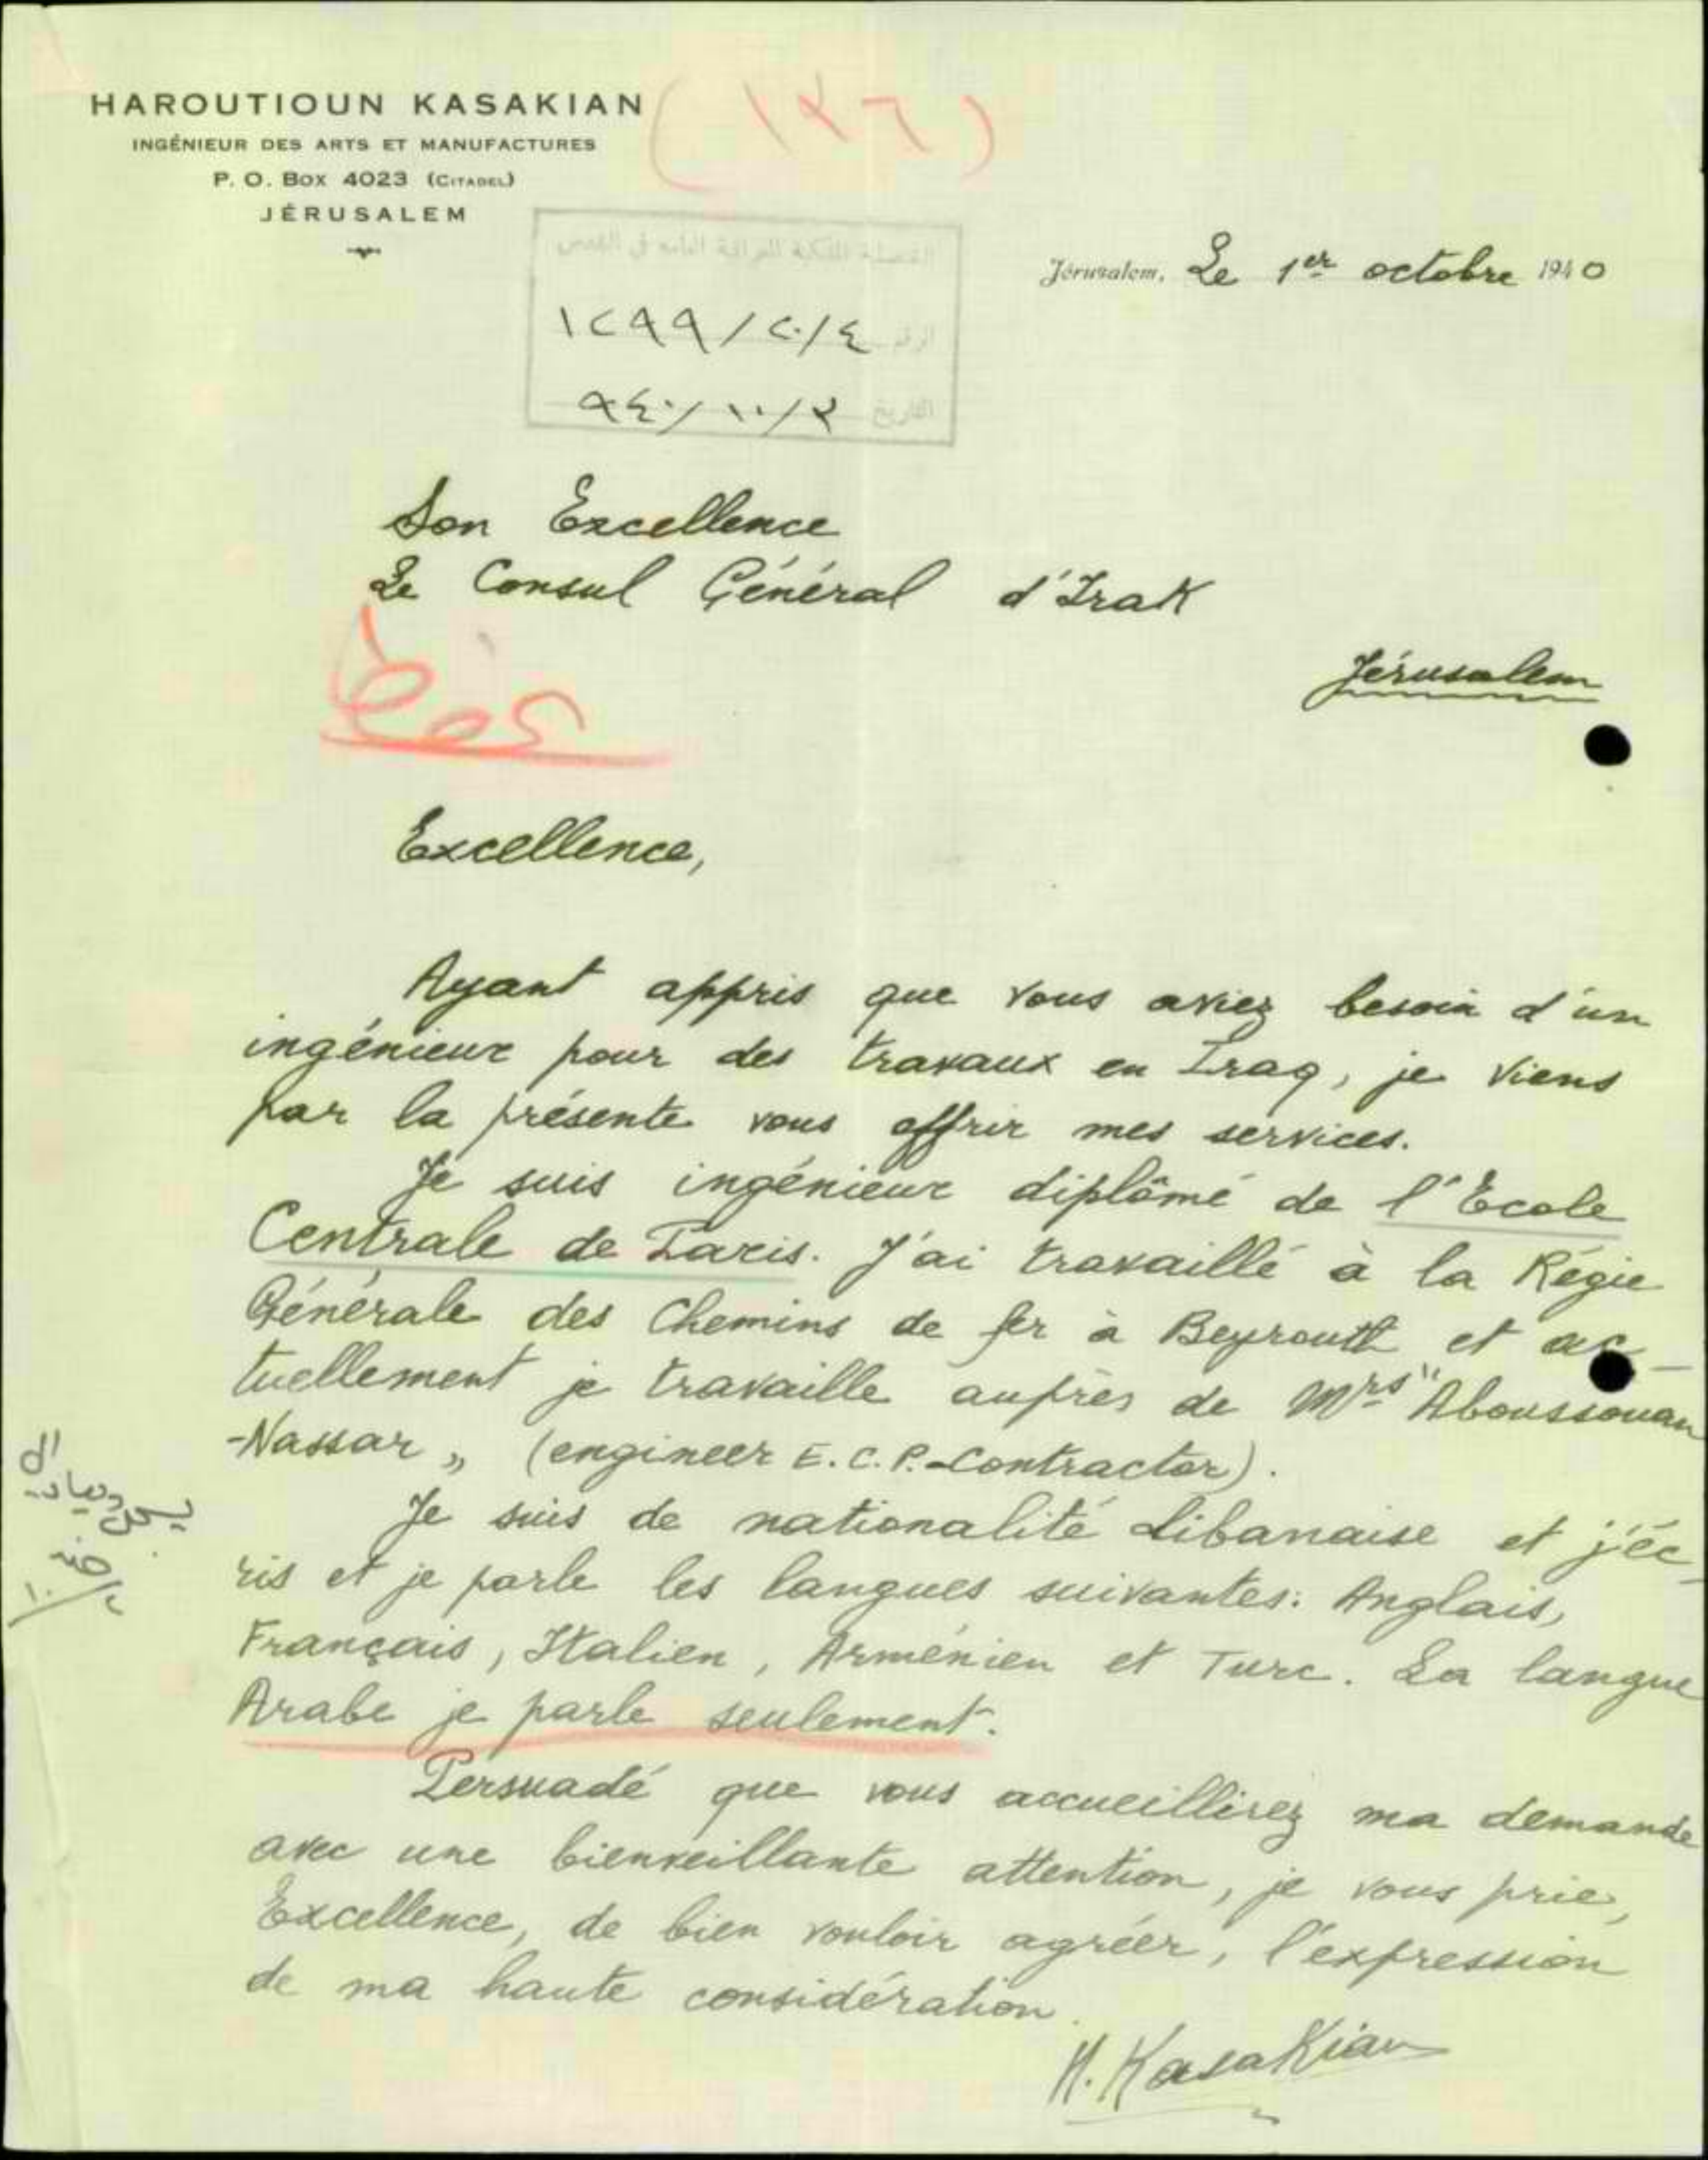 HAROUTIOUN KASAKIAN
INGÉNIEUR DES ARTS ET MANUFACTURES
P. O. Box 4023 (CITADEL)
JÉRUSALEM
(١٢٦)
القنصلية الملكية العراقية العامة في القدس
الرقم ١٢٩٩/٢٠/٤
التاريخ ٩٤٠/١٠/٢
Jérusalem, Le 1er octobre 1940
Son Excellence
Le Consul Général d'Irak
Jérusalem
Excellence,
Ayant appris que vous aviez besoin d'un
ingénieur pour des travaux en Iraq, je viens
par la présente vous offrir mes services.
Je suis ingénieur diplômé de l'Ecole
Centrale de Paris. J'ai travaillé à la Régie
Générale des Chemins de fer à Beyrouth et ac-
tuellement je travaille auprès de Mrs "Aboussouan
-Nassar" (engineer E.C.P.-Contractor).
Je suis de nationalité Libanaise et j'éc-
ris et je parle les langues suivantes: Anglais,
Français, Italien, Arménien et Turc. La langue
Arabe je parle seulement.
Persuadé que vous accueillirez ma demande
avec une bienveillante attention, je vous prie,
Excellence, de bien vouloir agréer, l'expression
de ma haute considération.
H. Kasakian